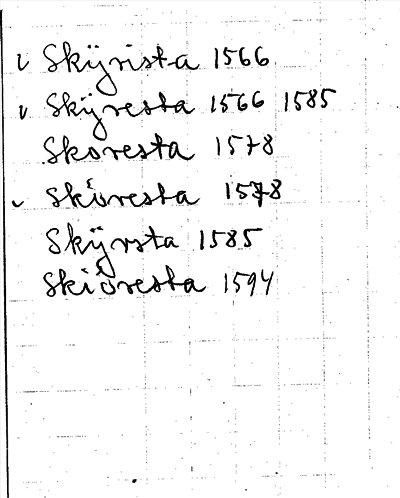 v Skÿrista 1566
v Skÿresta 1566 1585
Skoresta 1578
v Skiöresta 1578
Skÿrsta 1585
Skiöresta 1594